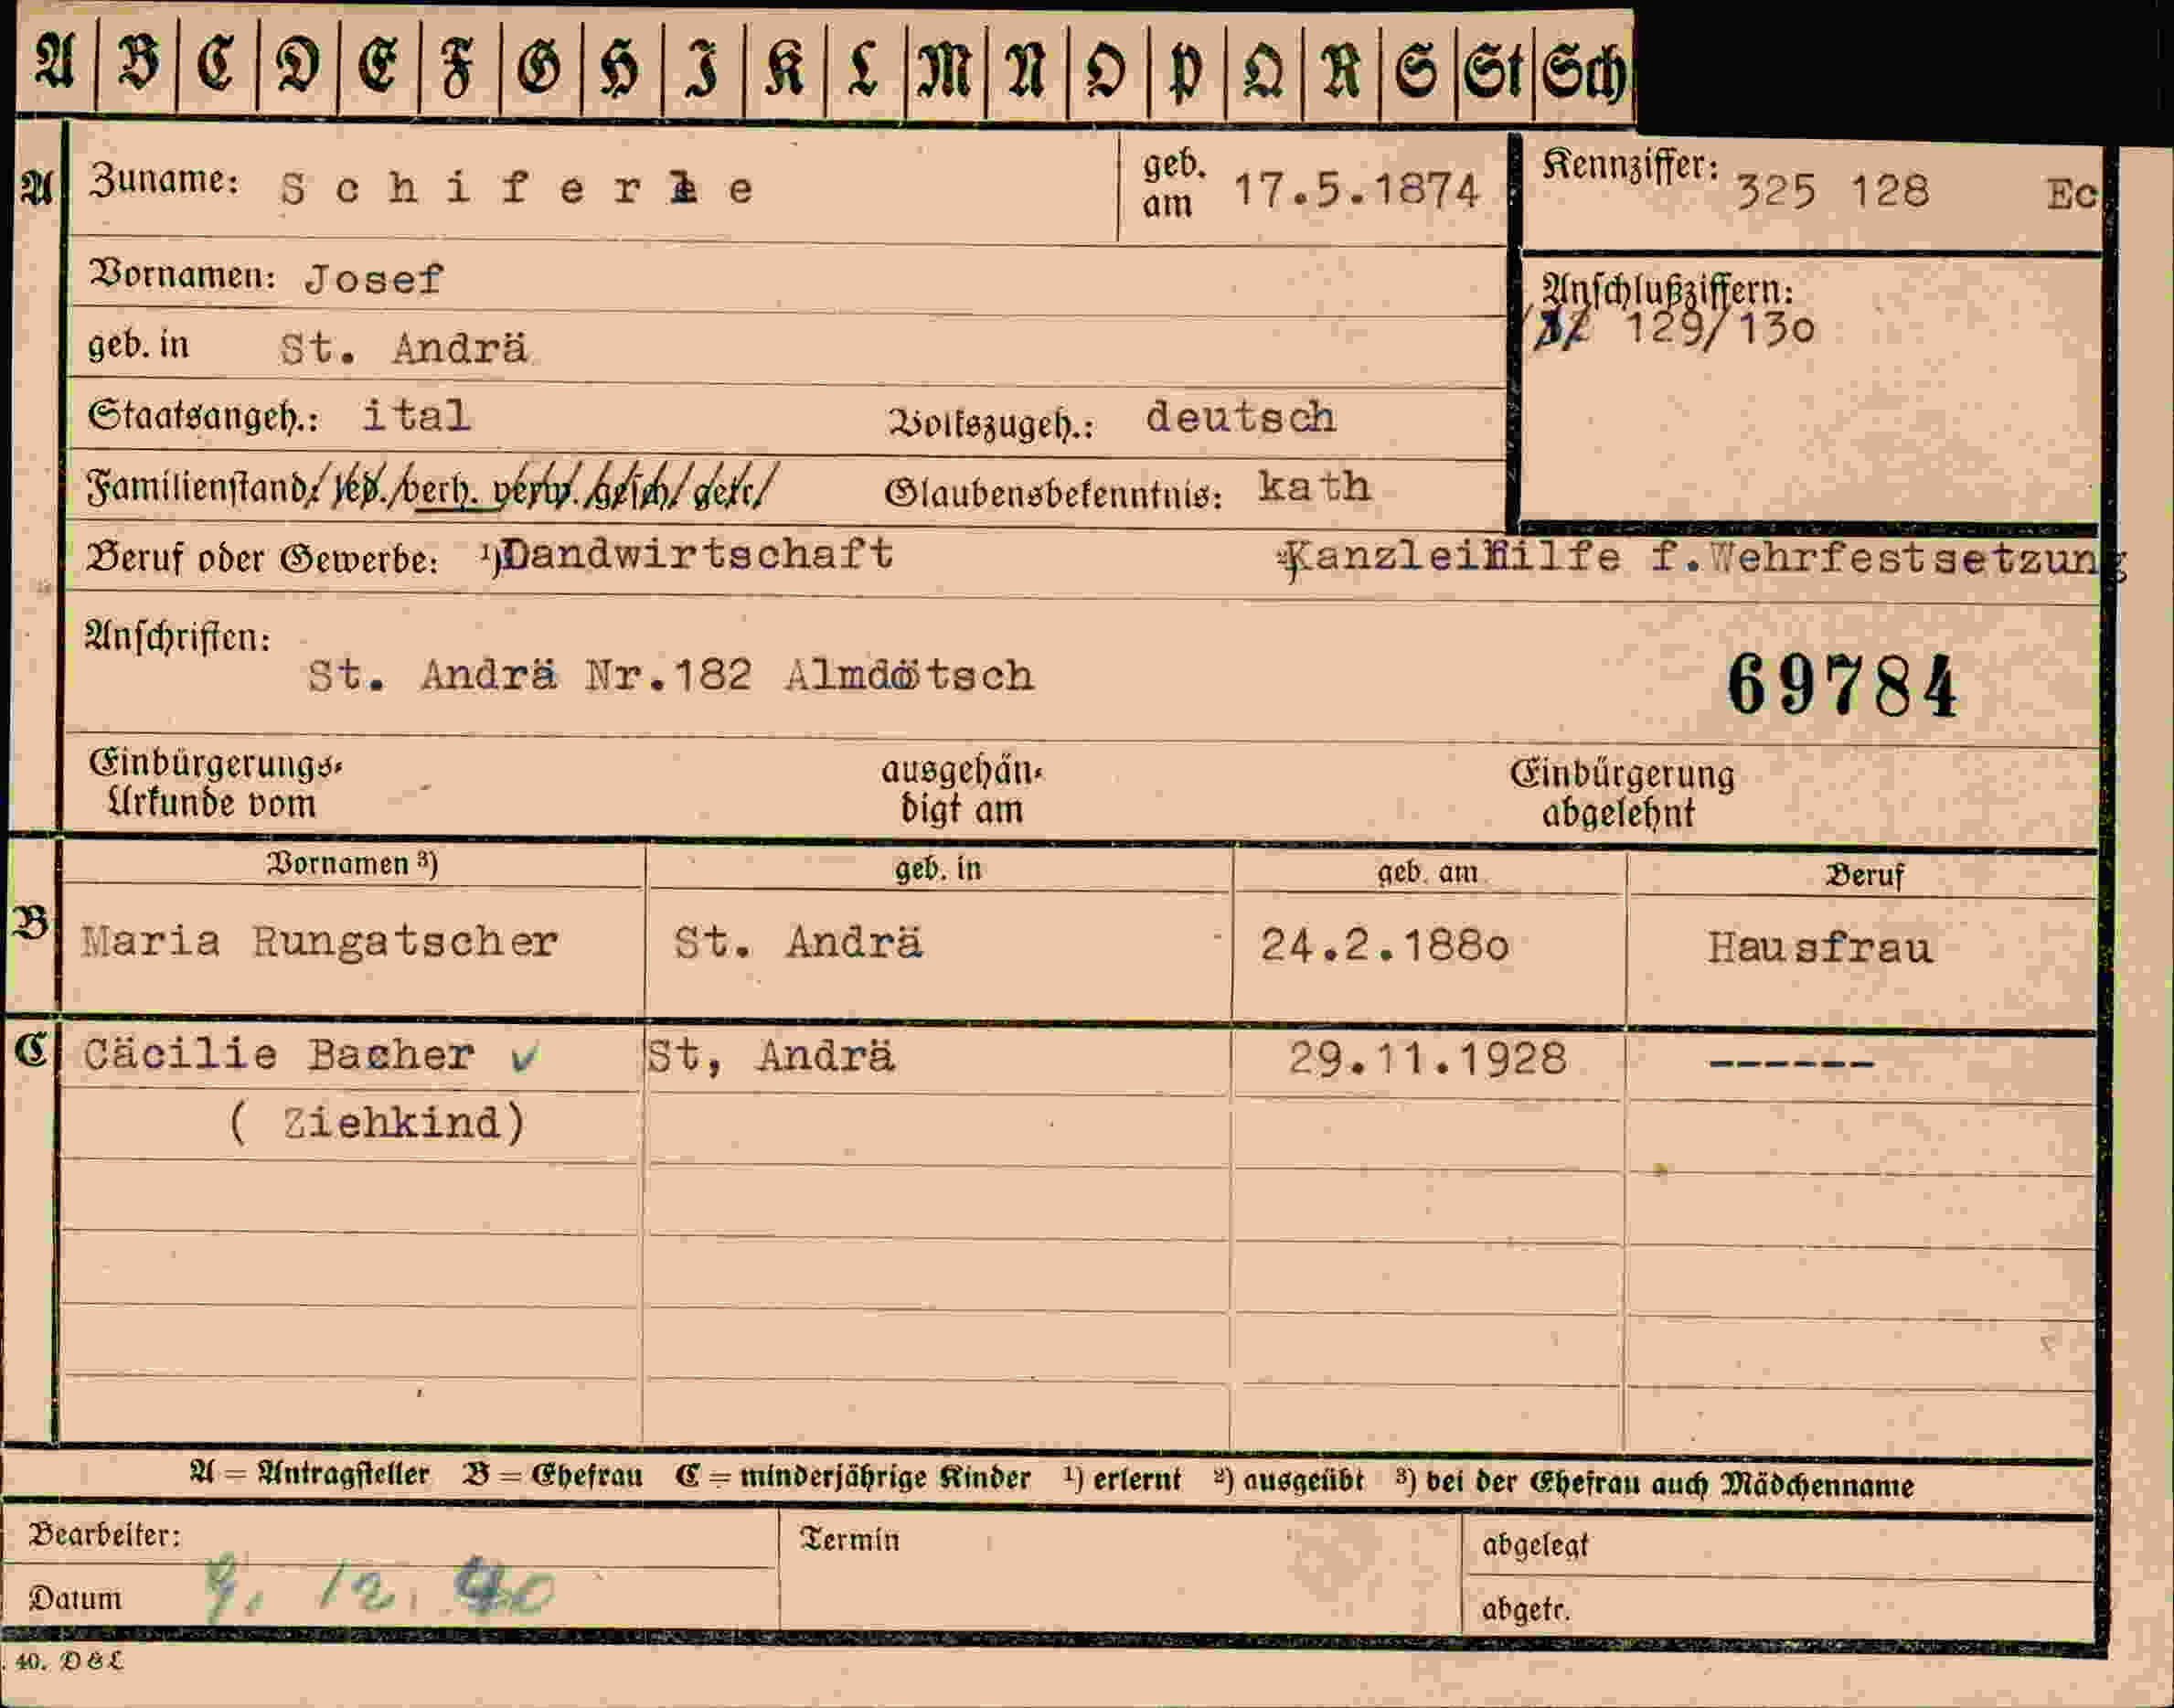 A B C D E F G H I K L M N O P Q R S St Sch
A Zuname: Schiferle geb. am 17.5.1874 Kennziffer: 325 128 Ec
Vornamen: Josef
Anschlußziffern:
129/130
geb. in St. Andrä
Staatsangeh.: ital Volkszugeh.: deutsch
Familienstand: led. verh. verw. gesch. getr. Glaubensbekenntnis: kath
Beruf oder Gewerbe: ¹)Dandwirtschaft Kanzleihilfe f.Wehrfestsetzung
Anschriften:
St. Andrä Nr.182 Almdötsch
69784
Einbürgerungs- ausgehän- Einbürgerung
Urkunde vom digt am abgelehnt
Vornamen ³) geb. in geb. am Beruf
B Maria Rungatscher St. Andrä 24.2.1880 Hausfrau
C Cäcilie Bacher ✓ St, Andrä 29.11.1928 ------
( Ziehkind)
A = Antragsteller B = Ehefrau C = minderjährige Kinder ¹) erlernt ²) ausgeübt ³) bei der Ehefrau auch Mädchenname
Bearbeiter: Termin abgelegt
Datum 9. 12. 40 abgetr.
40. D & L